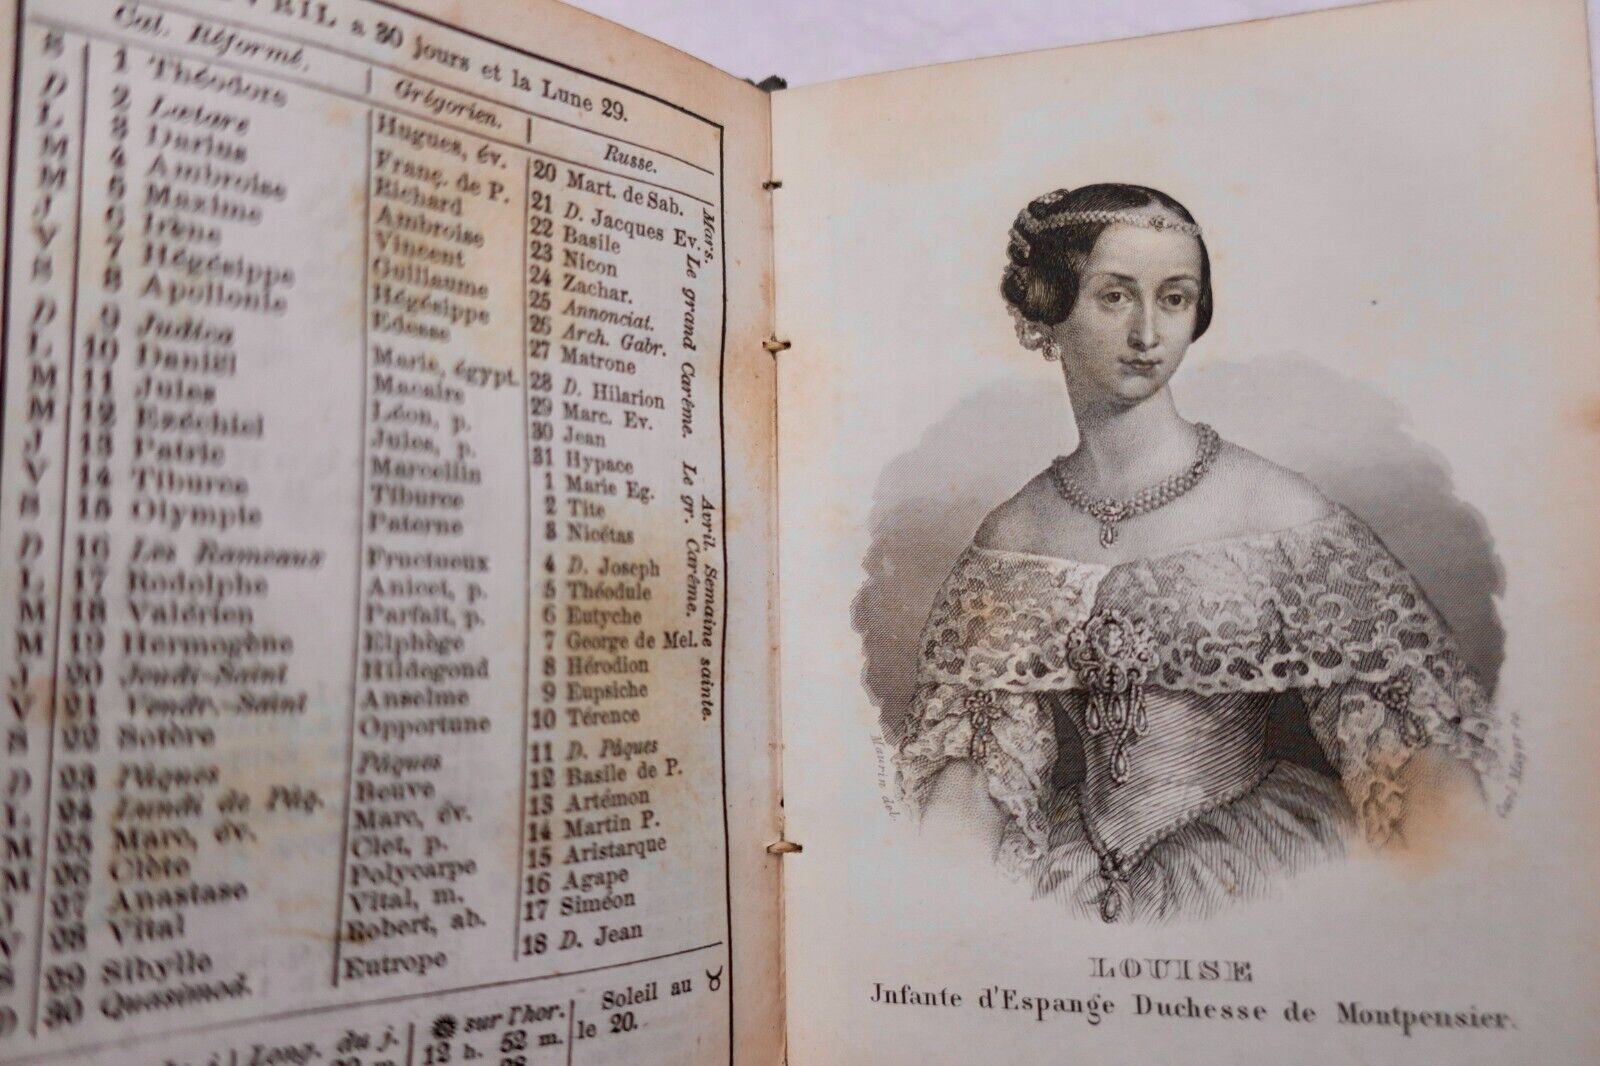 AVRIL a 30 jours et la Lune 29.
Cal. Réformé. Grégorien. Russe.
S 1 Théodore Hugues, év. 20 Mart. de Sab.
D 2 Lætare Franç. de P. 21 D. Jacques Ev.
L 3 Darius Richard 22 Basile
M 4 Ambroise Ambroise 23 Nicon
M 5 Maxime Vincent 24 Zachar.
J 6 Irène Guillaume 25 Annonciat.
V 7 Hégésippe Hégésippe 26 Arch. Gabr.
S 8 Apollonie Edesse 27 Matrone
D 9 Judica Marie, égypt. 28 D. Hilarion
L 10 Daniël Macaire 29 Marc. Ev.
M 11 Jules Léon, p. 30 Jean
M 12 Ezéchiel Jules, p. 31 Hypace
J 13 Patric Marcellin 1 Marie Eg.
V 14 Tiburce Tiburce 2 Tite
S 15 Olympie Paterne 3 Nicétas
D 16 Les Rameaux Fructueux 4 D. Joseph
L 17 Rodolphe Anicet, p. 5 Théodule
M 18 Valérien Parfait, p. 6 Eutyche
M 19 Hermogène Elphège 7 George de Mel.
J 20 Jeudi-Saint Hildegond 8 Hérodion
V 21 Vendr.-Saint Anselme 9 Eupsiche
S 22 Sotère Opportune 10 Térence
D 23 Pâques Pâques 11 D. Pâques
L 24 Lundi de Pâq. Beuve 12 Basile de P.
M 25 Marc, év. Marc, év. 13 Artémon
M 26 Clète Clet, p. 14 Martin P.
J 27 Anastase Polycarpe 15 Aristarque
V 28 Vital Vital, m. 16 Agape
S 29 Sibylle Robert, ab. 17 Siméon
D 30 Quasimod. Eutrope 18 D. Jean
Mars. Avril. Semaine sainte.
Le grand Carême. Le gr. Carême.
Long. du j. sur l'hor. Soleil au ♉
12 h. 52 m. le 20.
Maurin del.
Carl Mayer sc.
LOUISE
Jnfante d'Espange Duchesse de Montpensier.